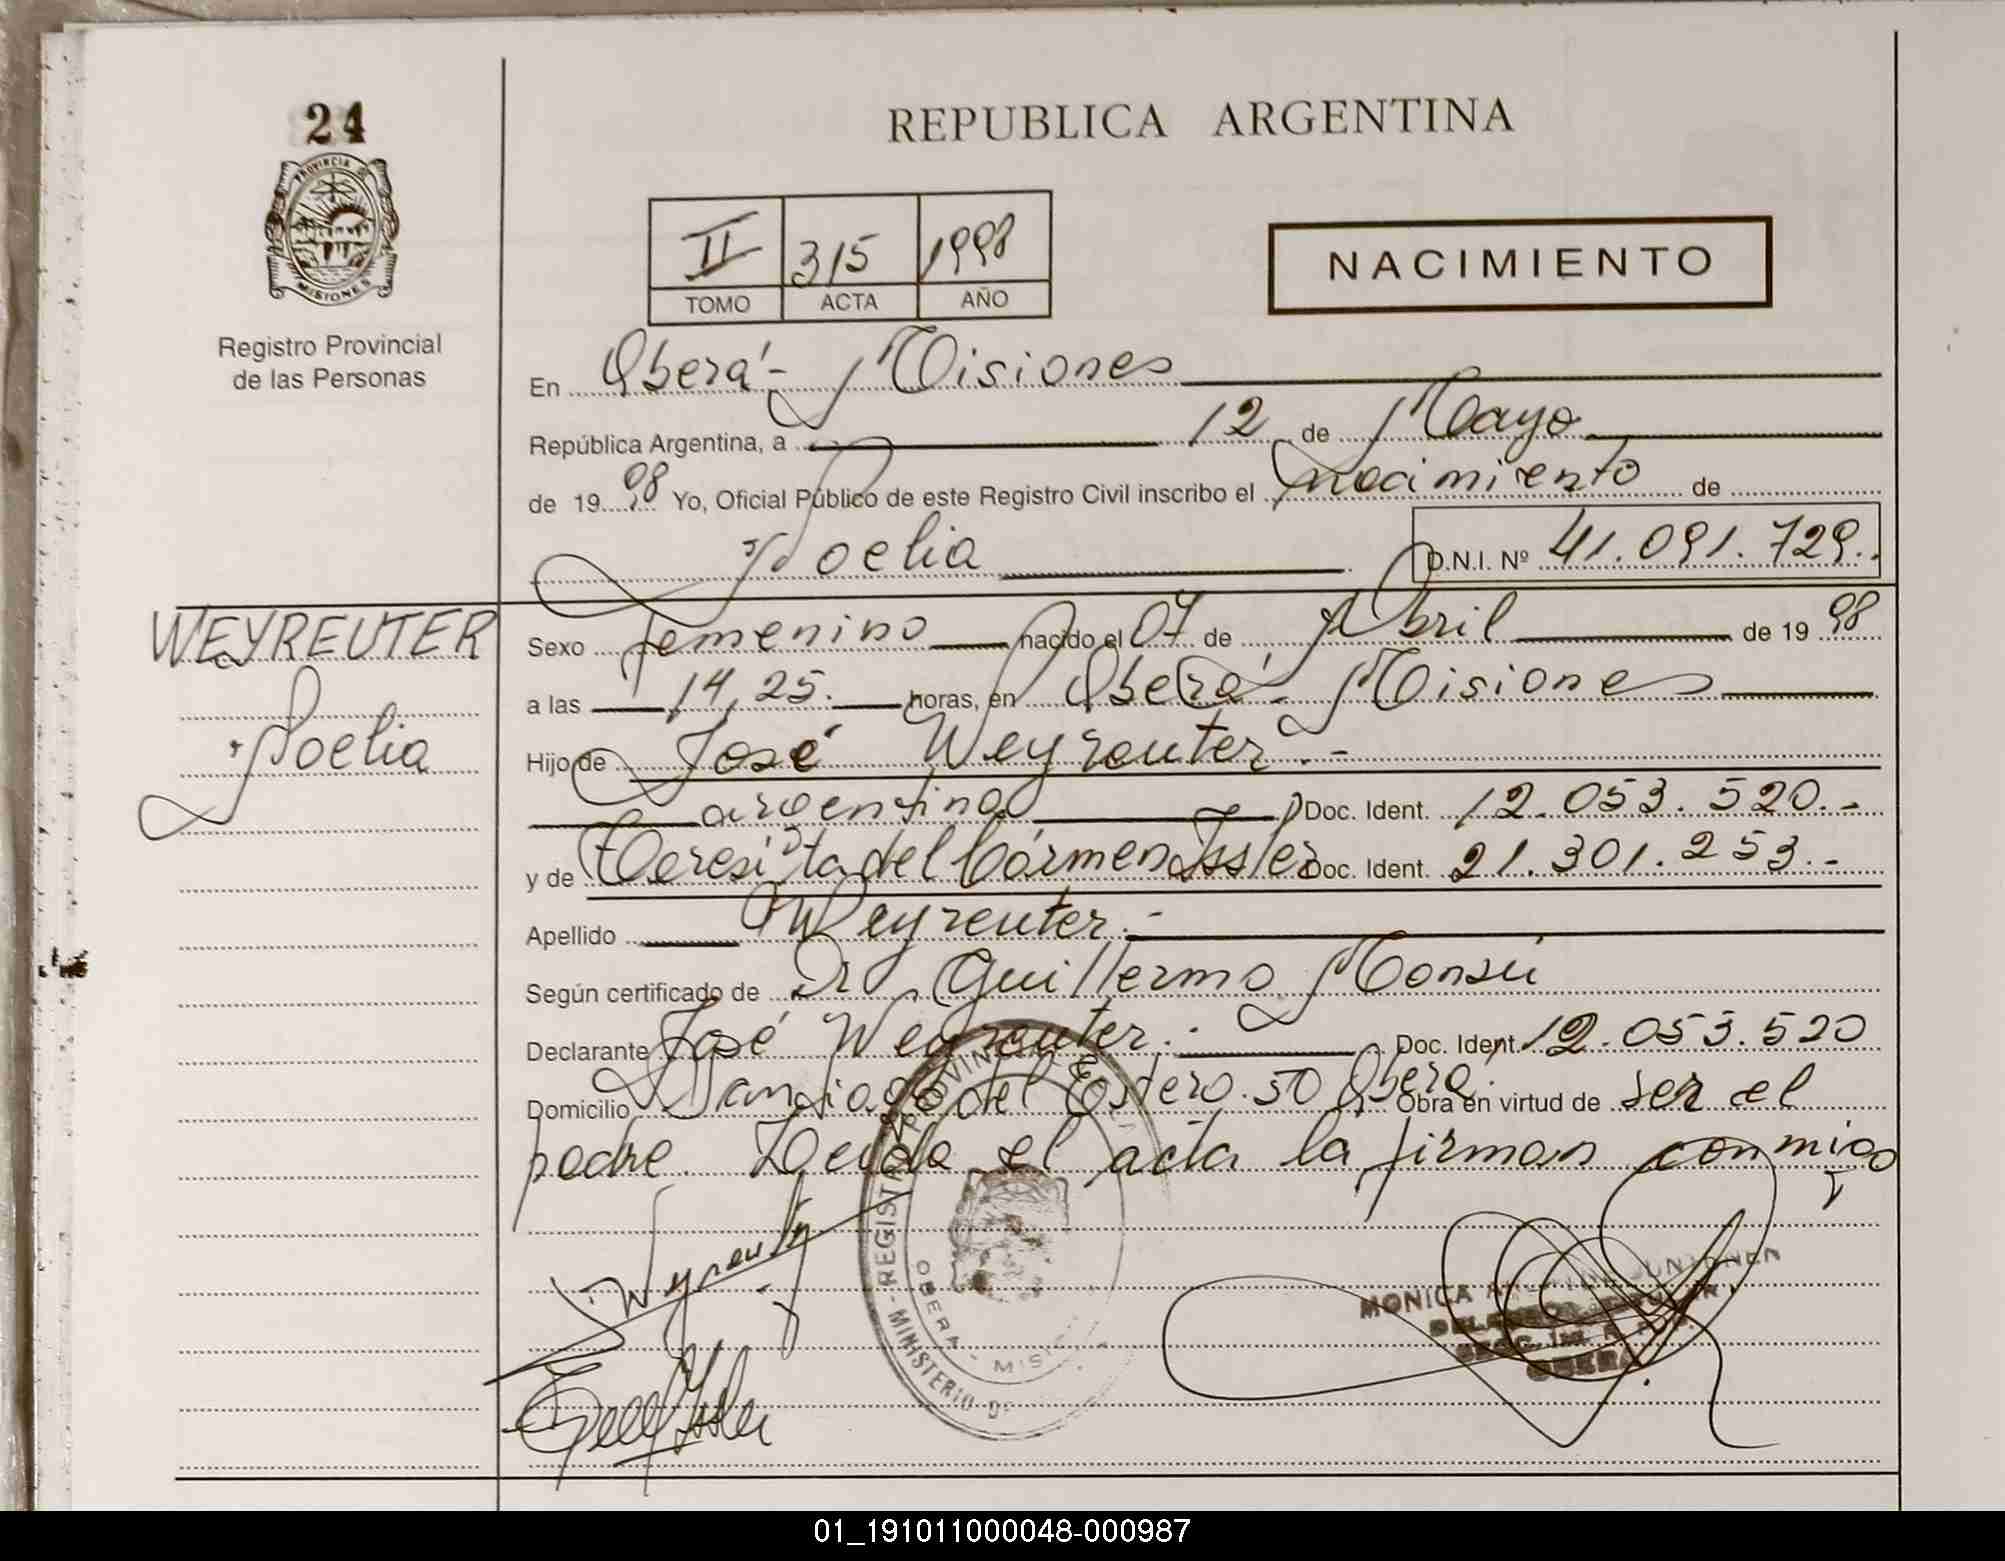 24
PROVINCIA DE
MISIONES
Registro Provincial
de las Personas
REPUBLICA ARGENTINA
II 315 1998
TOMO ACTA AÑO
NACIMIENTO
En Oberá - Misiones
República Argentina, a 12 de Mayo
de 19 98 Yo, Oficial Público de este Registro Civil inscribo el nacimiento de
Noelia D.N.I. Nº 41.091.729.
WEYREUTER
Noelia
Sexo femenino nacido el 07 de Abril de 19 98
a las 14,25. horas, en Oberá - Misiones
Hijo de José Weyreuter.-
argentino Doc. Ident. 12.053.520.-
y de Teresita del Cármen Issler Doc. Ident. 21.301.253.-
Apellido Weyreuter.-
Según certificado de Dr Guillermo Monsú
Declarante José Weyreuter. Doc. Ident. 12.053.520
Domicilio Santiago del Estero 50 Oberá. Obra en virtud de ser el
padre. Leida el acta la firman conmigo
REGISTR PROVIN
OBERA - MISI
- MINISTERIO DE
Weyreuter
MONICA
OBERA
01_191011000048-000987